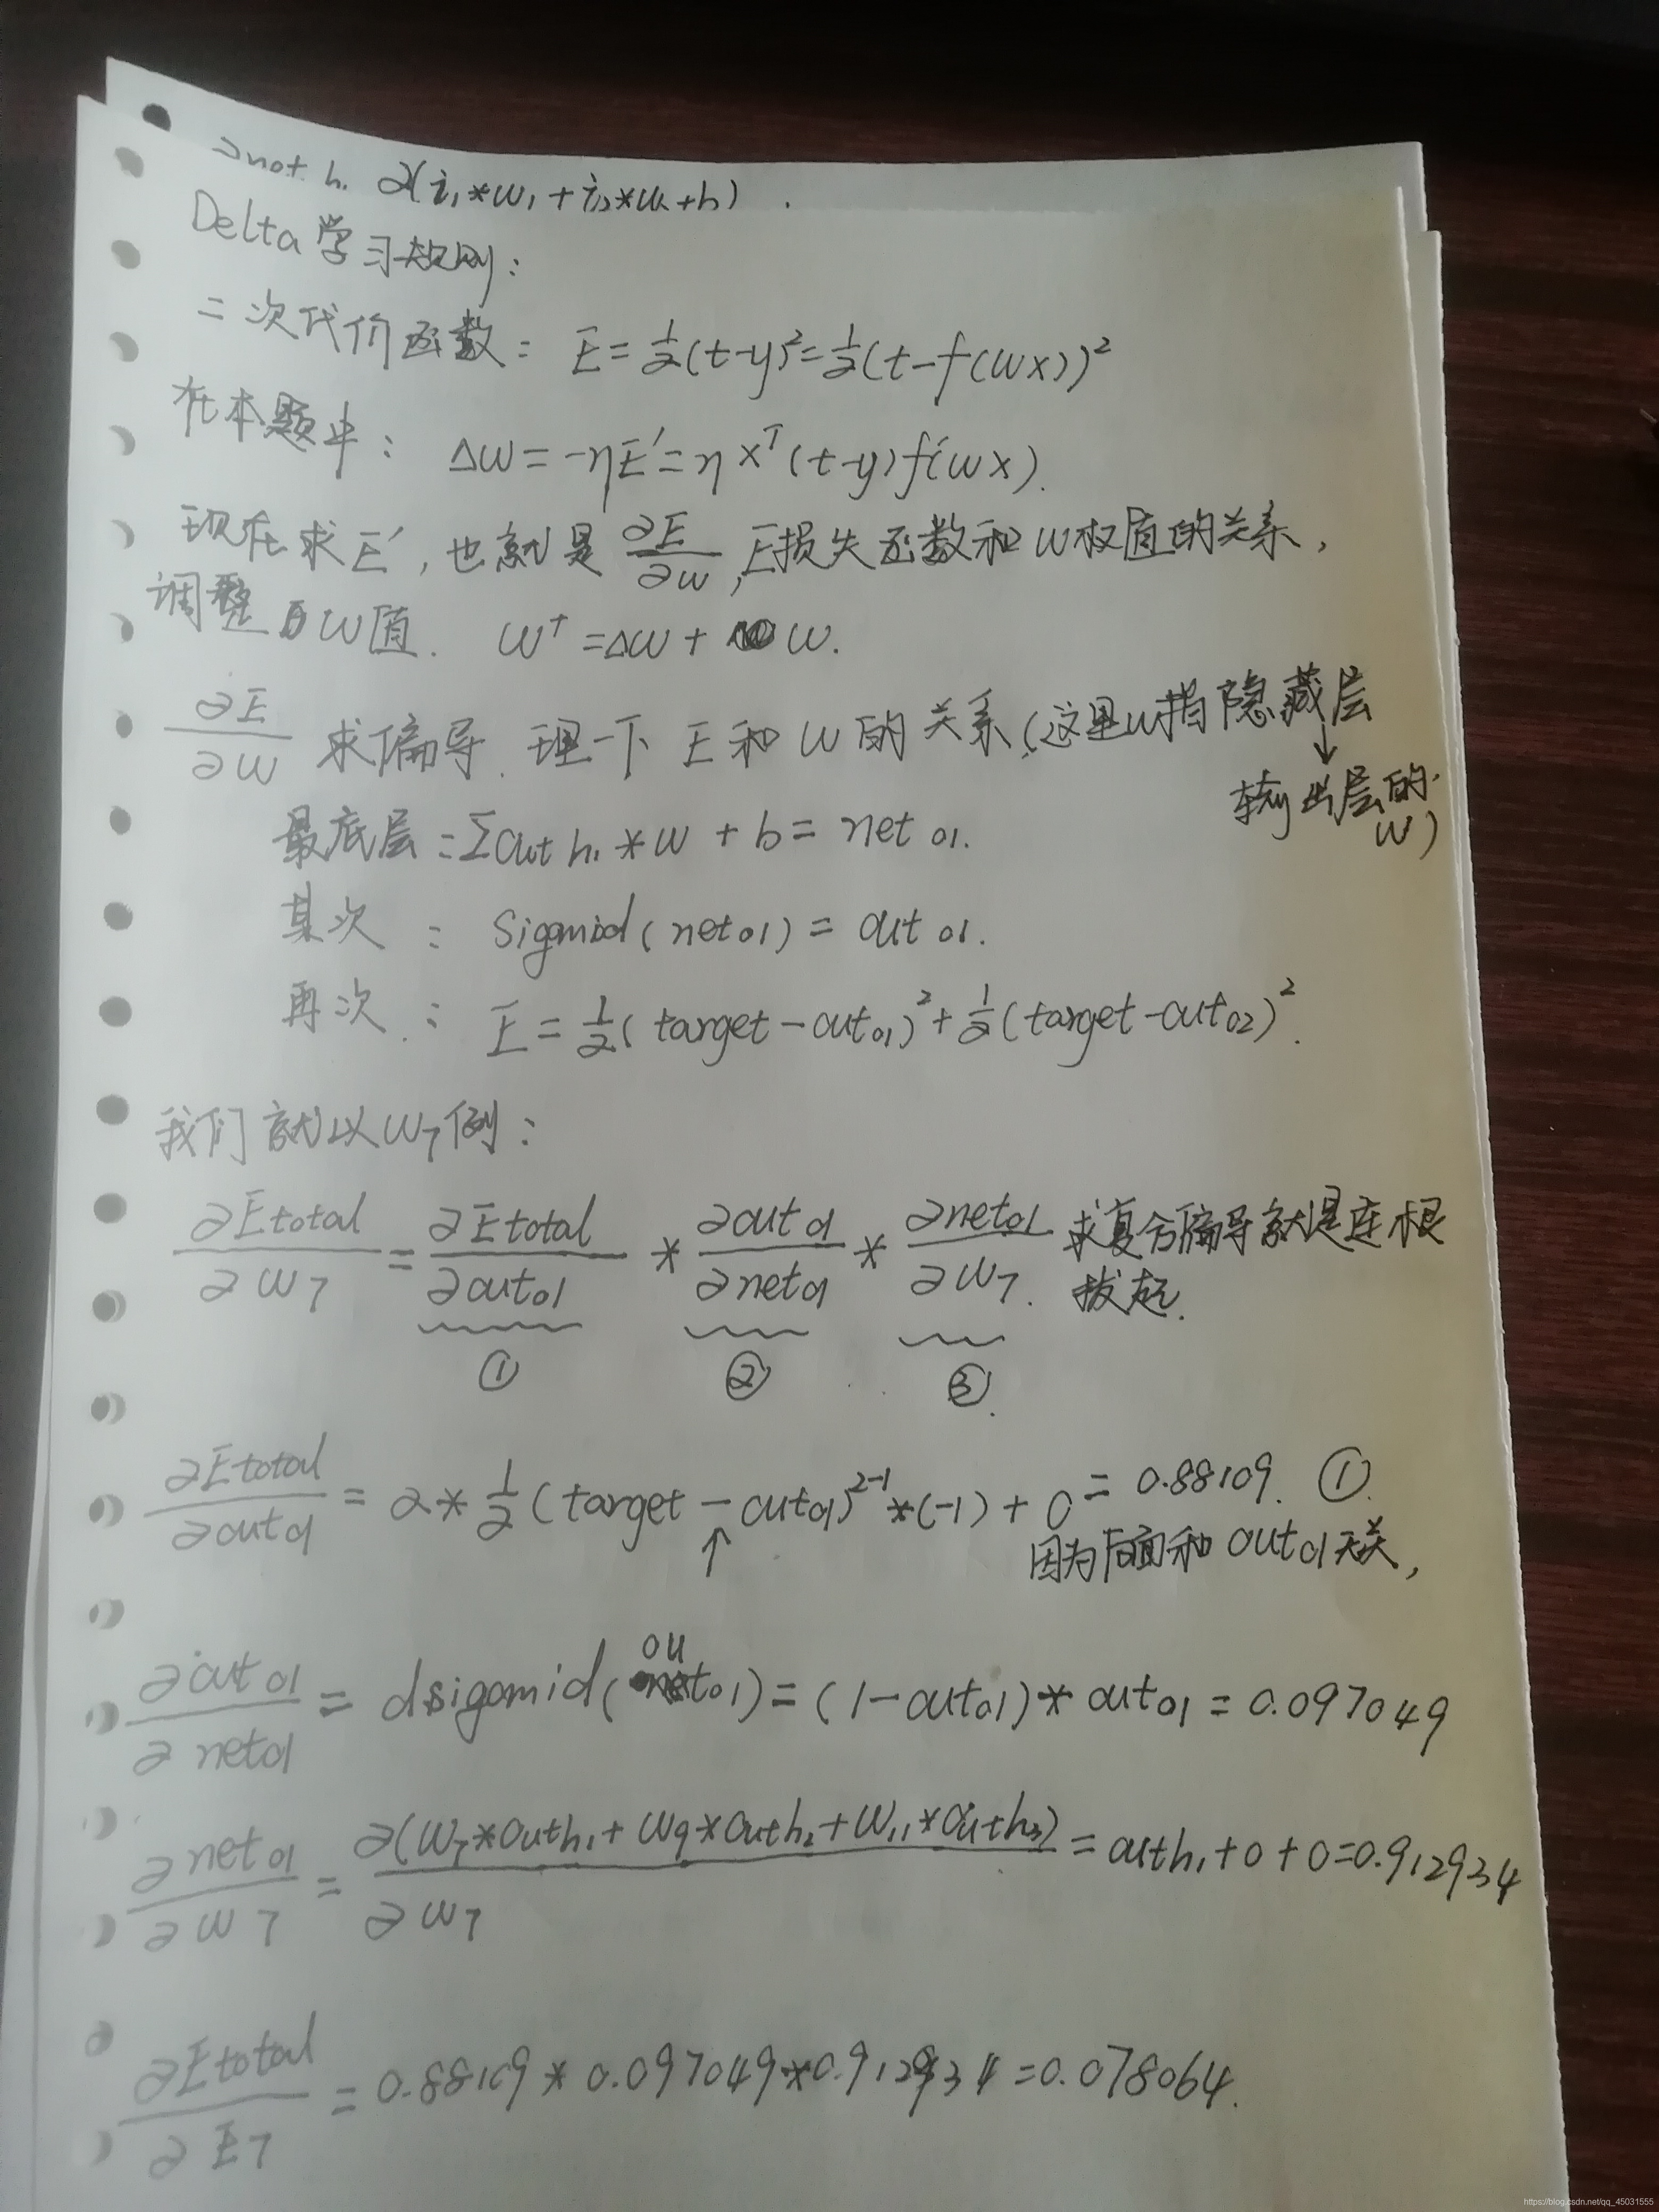 ∂net h. ∂(i₁*w₁+i₂*w₂+b).
Delta学习规则:
二次代价函数: E=½(t-y)²=½(t-f(WX))²
在本题中: ΔW=-ηE'=ηXᵀ(t-y)f'(WX).
现在求E',也就是∂E/∂W,E损失函数和W权值的关系,
调整W值. W⁺=ΔW+W.
∂E/∂W 求偏导.理一下E和W的关系(这里W指隐藏层
↓
输出层的
W)
最底层:Σout h₁*W+b=net o1.
其次: Sigomid(net o1)=out o1.
再次: E=½(target-out o1)²+½(target-out o2)².
我们就以W₇例:
∂Etotal/∂W₇=∂Etotal/∂out o1*∂out o1/∂net o1*∂net o1/∂W₇. 求复合偏导就是连根
拔起.
① ② ③.
∂Etotal/∂out o1=2*½(target-out o1)²⁻¹*(-1)+0=0.88109. ①
↑ 因为后面和out o1无关,
ou
∂out o1/∂net o1=dsigomid(t o1)=(1-out o1)*out o1=0.097049
∂net o1/∂W₇=∂(W₇*outh₁+W₉*outh₂+W₁₁*outh₃)/∂W₇=outh₁+0+0=0.912934
∂Etotal/∂E₇=0.88109*0.097049*0.912934=0.078064.
https://blog.csdn.net/qq_45031555